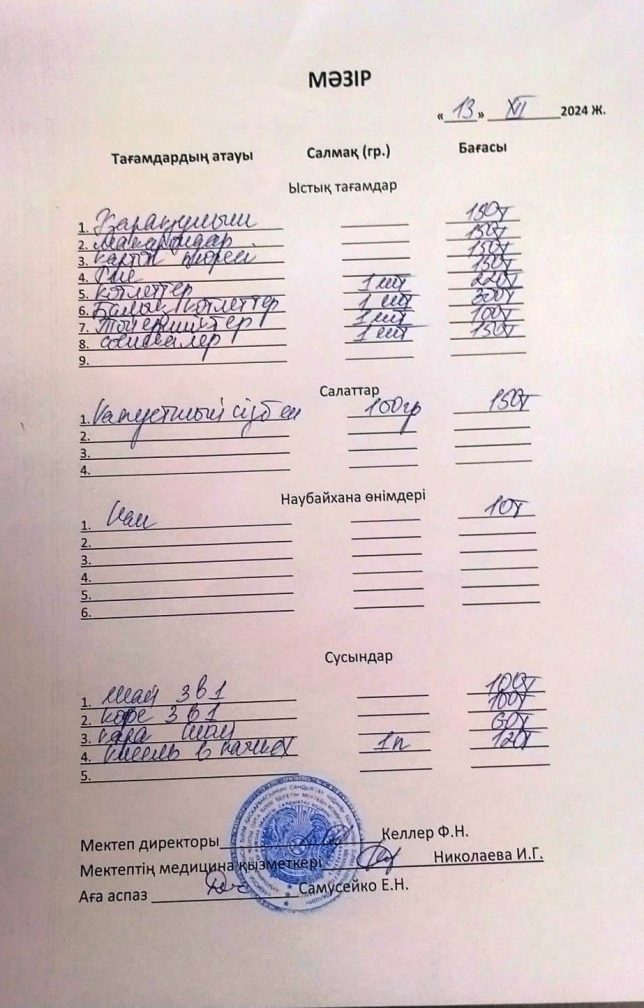 МӘЗІР
« 13 » XII 2024 Ж.
Тағамдардың атауы Салмақ (гр.) Бағасы
Ыстық тағамдар
1. Қарақұмық 150т
2. макарондар 150т
3. картоп пюресі 150т
4. 150т
5. котлеттер 1 шт 220т
6. Балық котлеттер 1 шт 300т
7. Точерниктер 1 шт 100т
8. сосискалер 1 шт 150т
9.
Салаттар
1. Капустный сізбен 100гр 150т
2.
3.
4.
Наубайхана өнімдері
1. Нан 10т
2.
3.
4.
5.
6.
Сусындар
1. Шай 3 в 1 100т
2. кофе 3 в 1 100т
3. қара шай 60т
4. кисель в пачках 1п 120т
5.
Мектеп директоры Келлер Ф.Н.
Мектептің медицина қызметкері Николаева И.Г.
Аға аспаз Самусейко Е.Н.